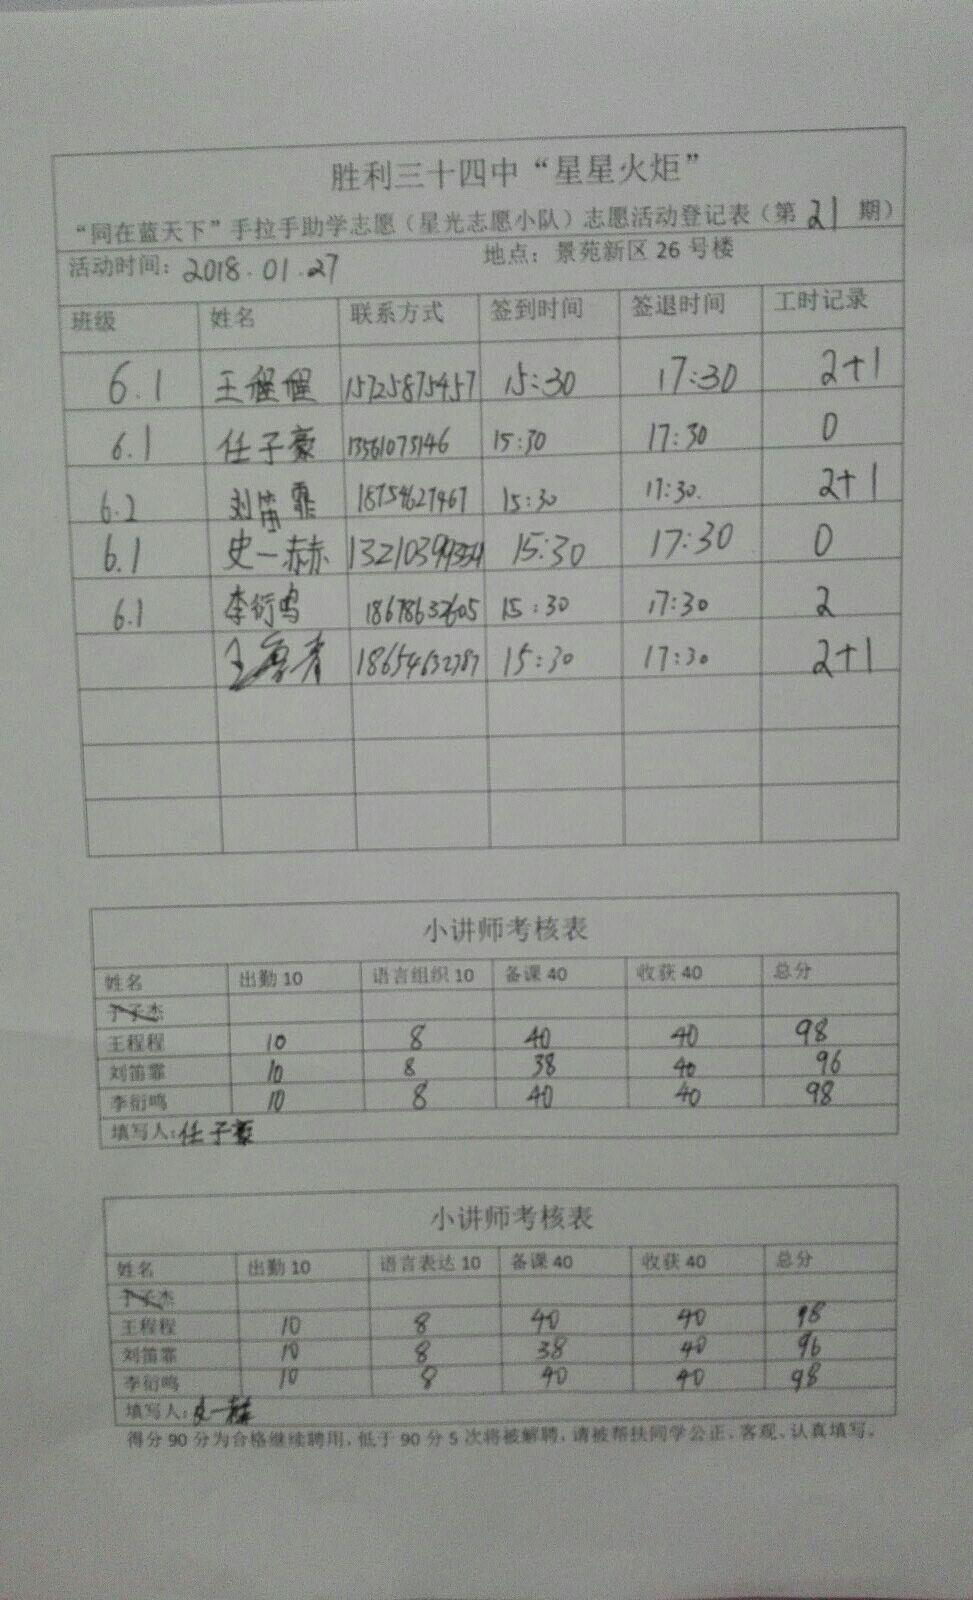 胜利三十四中“星星火炬”
“同在蓝天下”手拉手助学志愿（星光志愿小队）志愿活动登记表（第 21 期）
活动时间：2018.01.27 地点：景苑新区 26 号楼
班级 姓名 联系方式 签到时间 签退时间 工时记录
6.1 王程程 15725875457 15:30 17:30 2+1
6.1 任子豪 13561075146 15:30 17:30 0
6.2 刘笛霏 18754627467 15:30 17:30. 2+1
6.1 史一赫 15:30 17:30 0
6.1 李衍鸣 18678632605 15:30 17:30 2
王 18654632787 15:30 17:30 2+1
小讲师考核表
姓名 出勤 10 语言组织 10 备课 40 收获 40 总分
于子杰
王程程 10 8 40 40 98
刘笛霏 10 8 38 40 96
李衍鸣 10 8 40 40 98
填写人：任子豪
小讲师考核表
姓名 出勤 10 语言表达 10 备课 40 收获 40 总分
于子杰
王程程 10 8 40 40 98
刘笛霏 10 8 38 40 96
李衍鸣 10 8 40 40 98
填写人：史一赫
得分 90 分为合格继续聘用，低于 90 分 5 次将被解聘，请被帮扶同学公正、客观、认真填写。